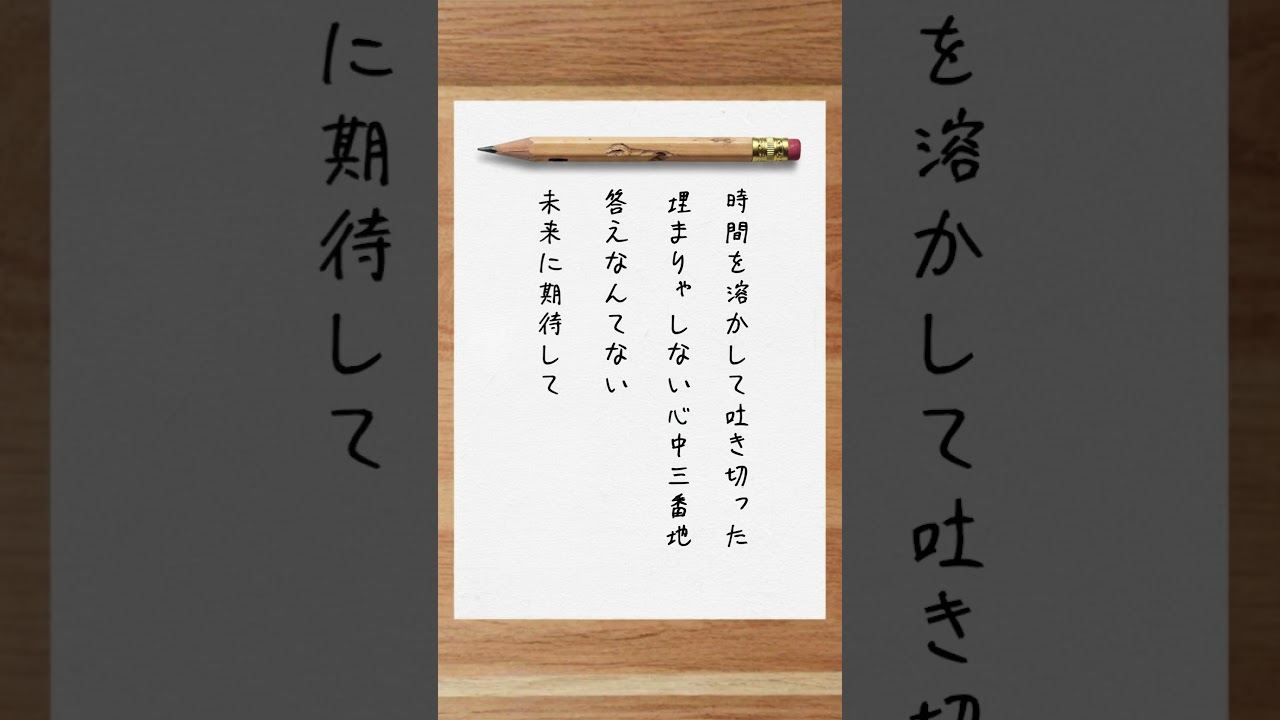 時間を溶かして吐き切った
埋まりゃしない心中三番地
答えなんてない
未来に期待して
を溶かして吐き切
に期待して